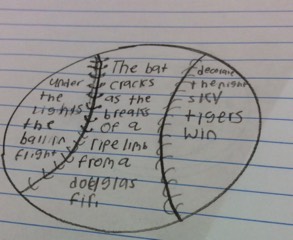 under
the
lights
the
ball in
flight
The bat
cracks
as the
breaks
of a
ripe limb
from a
doуglas
fir.
decorate
the night
sky
tigers
win